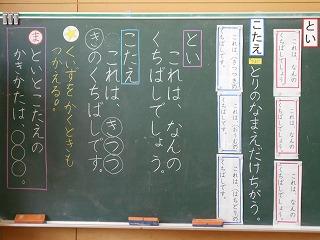 とい
これは、なんの
くちばしでしょう。
これは、なんの
くちばしでしょう。
これは、なんの
くちばしでしょう。
こたえ
とりのなまえだけちがう。
これは、きつつきの
くちばしです。
これは、おうむの
くちばしです。
これは、はちどりの
くちばしです。
とい
これは、なんの
くちばしでしょう。
こたえ
これは、きつつ
きのくちばしです。
くいずをかくときも
つかえる。
ま
といとこたえの
かきかたは、〇〇〇。